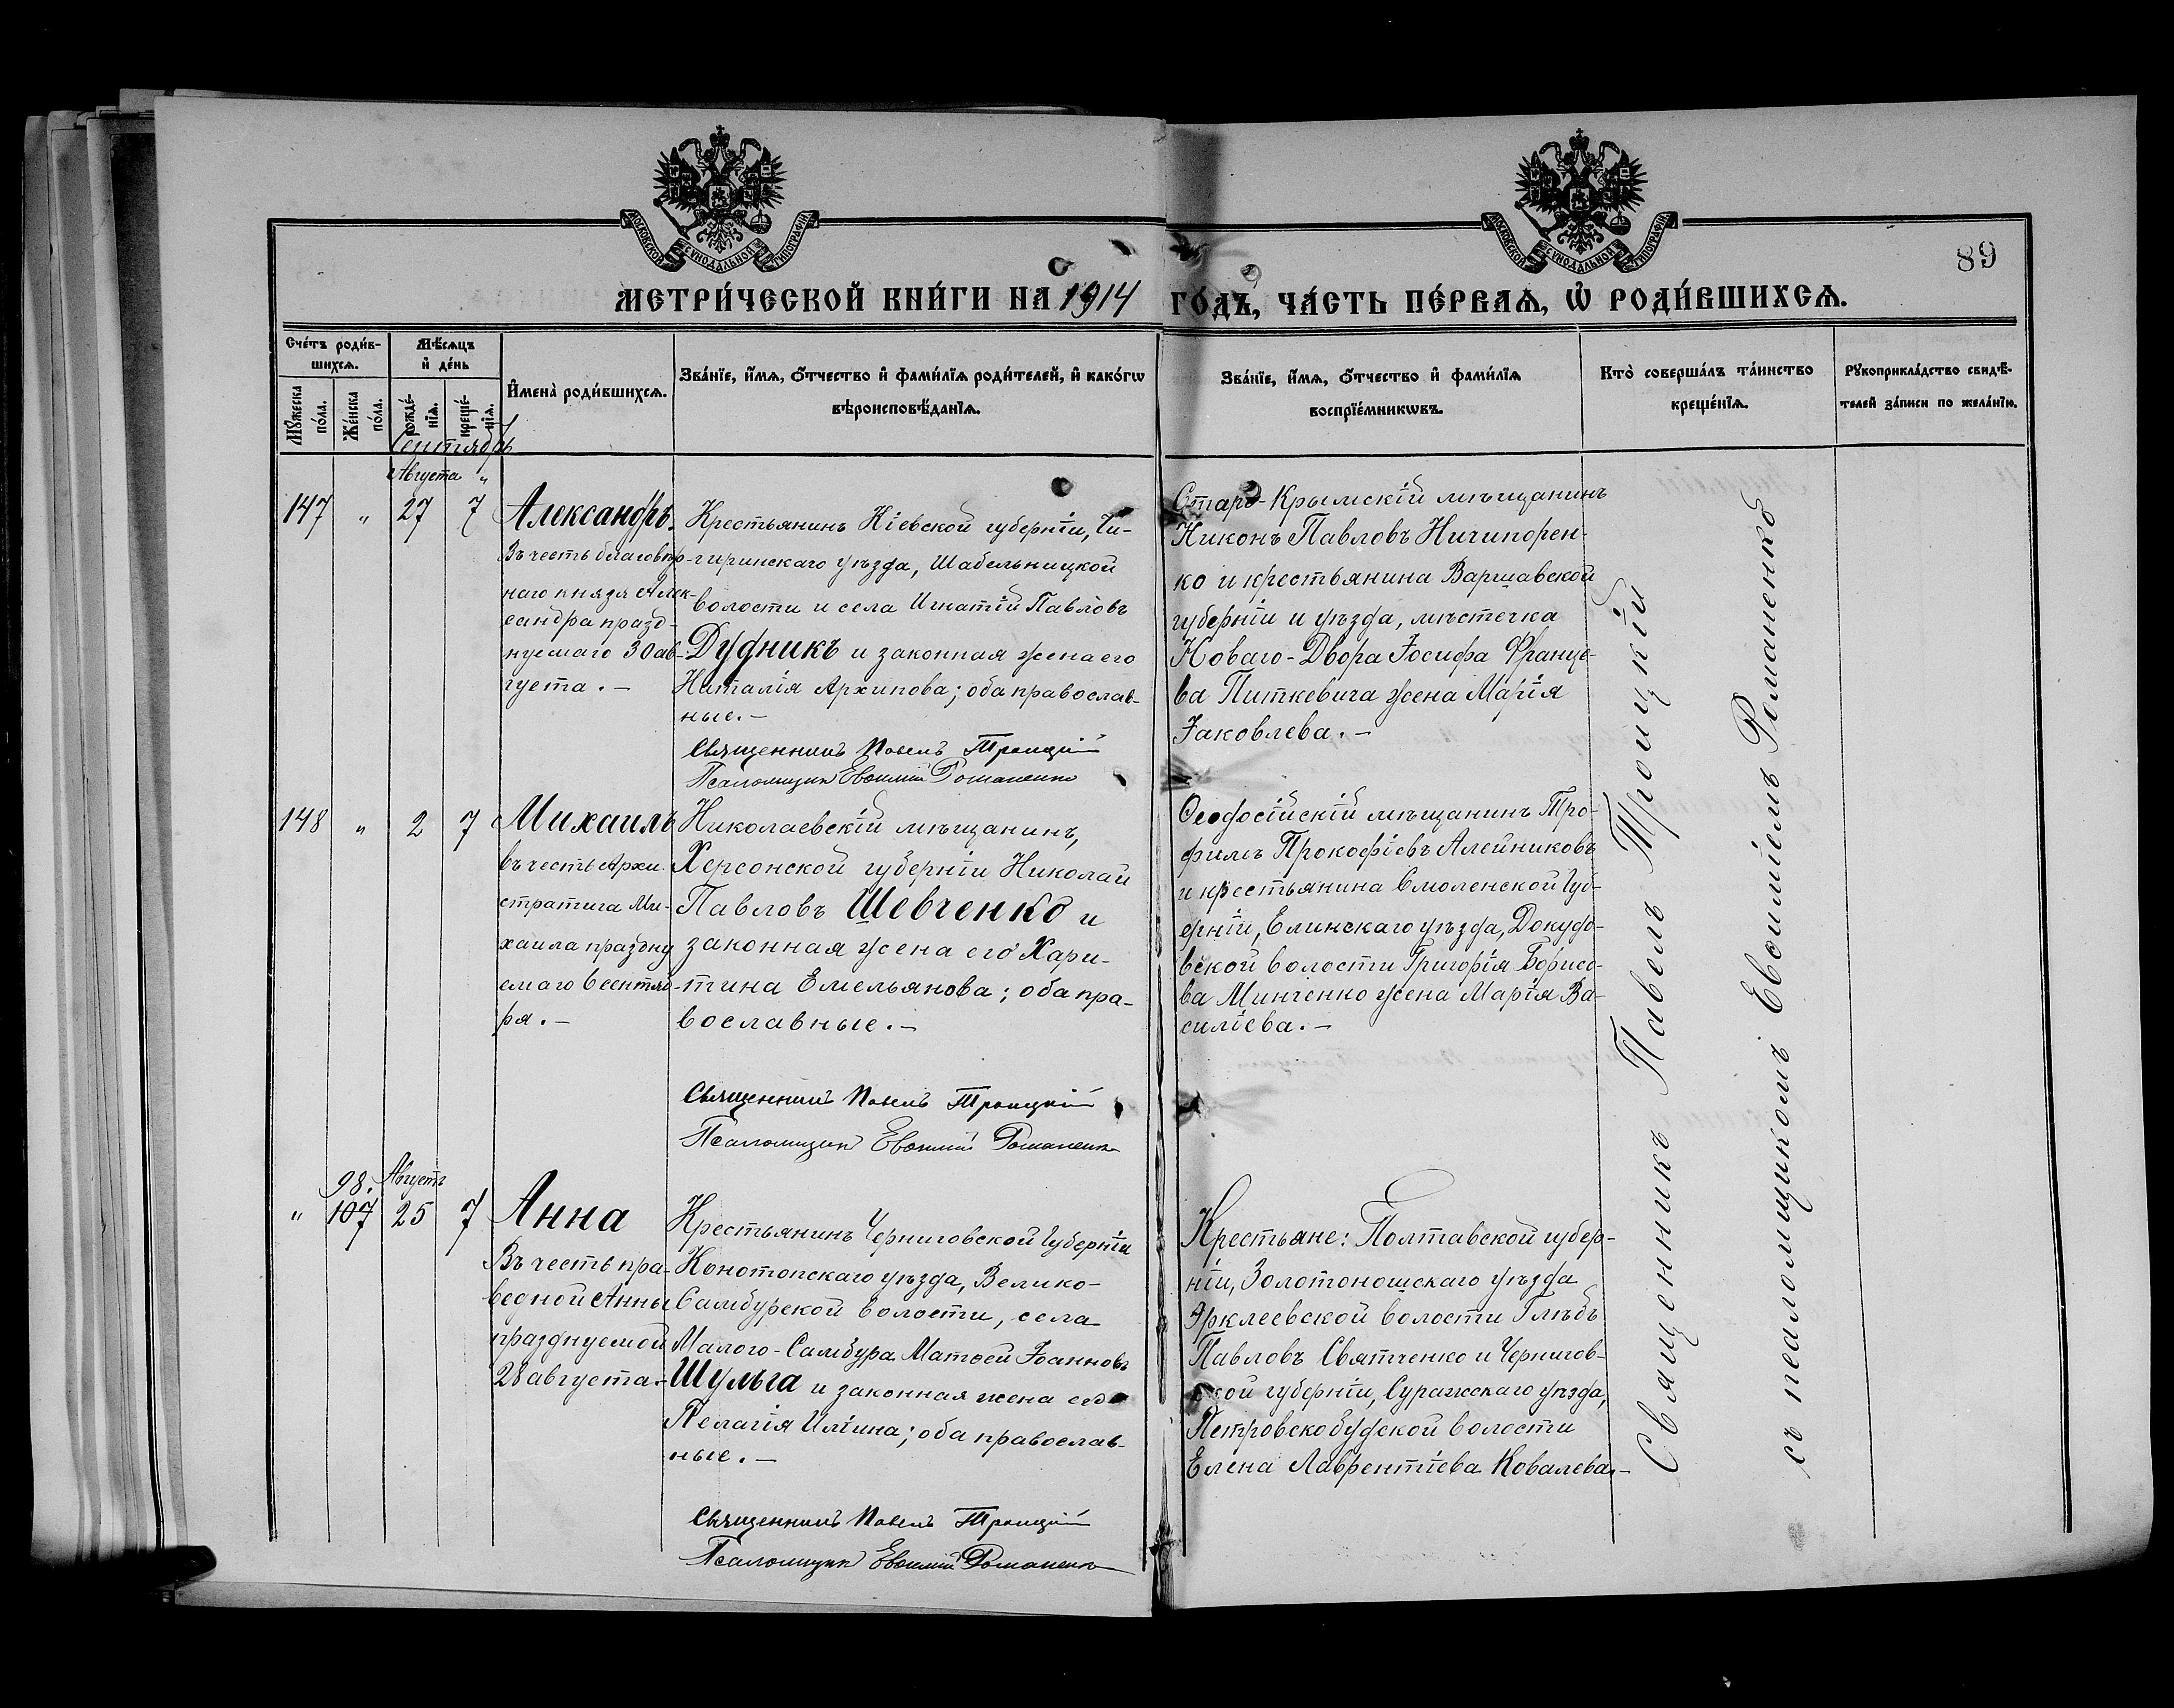 МОСКОВСКОЙ СУНОДАЛЬНОЙ ТИПОГРАФІИ
МОСКОВСКОЙ СУНОДАЛЬНОЙ ТИПОГРАФІИ
89
МЕТРИ́ЧЕСКОЙ КНИ́ГИ НА 1914 ГО́ДЪ, ЧА́СТЬ ПЕ́РВАѦ, Ѡ҆ РОДИ́ВШИХСѦ.
Сче́тъ роди́в-
шихсѧ.
Мꙋжеска по́ла.
Же́нска по́ла.
Мѣ́сѧцъ
и҆ де́нь
рожде́-
нїѧ.
креще́-
нїѧ.
И҆мена̀ роди́вшихсѧ.
Зва́нїе, и҆́мѧ, ѻ҆́тчество и҆ фами́лїѧ роди́телей, и҆ како́гѡ
вѣроисповѣ́данїѧ.
Зва́нїе, и҆́мѧ, ѻ҆́тчество и҆ фами́лїѧ
воспрїе́мникѡвъ.
Кто̀ соверша́лъ та́инство
креще́нїѧ.
Рꙋкоприкла́дство свидѣ́-
телей за́писи по жела́нїю.
Сентябрь
Августа "
147 " 27 7
Александръ.
Въ честь благовѣр-
наго князя Алек-
сандра празд-
нуемаго 30 ав-
густа. –
Крестьянинъ Кіевской губерніи, Чи-
гиринскаго уѣзда, Шабельницкой
волости и села Игнатій Павловъ
Дудникъ и законная жена его
Наталія Архипова; оба православ-
ные. –
Священникъ Павелъ Троицкій
Псаломщик Евѳимій Романенко
Старо-Крымскій мѣщанинъ
Никонъ Павловъ Ничипорен-
ко и крестьянина Варшавской
губерніи и уѣзда, мѣстечка
Новаго-Двора Іосифа Францe-
ва Питкевича жена Марія
Іаковлева. –
148 " 2 7
Михаилъ
въ честь Архи-
стратига Ми-
хаила праздну
емаго 6 сентяб-
ря. –
Николаевскій мѣщанинъ,
Херсонской губерніи Николай
Павловъ Шевченко и
законная жена его Хари-
тина Емельянова; оба пра-
вославные. –
Священникъ Павелъ Троицкій
Псаломщик Евѳимій Романенко
Ѳеодосійскій мѣщанинъ Тро-
фимъ Прокофіевъ Алейниковъ
и крестьянина Смоленской губ-
ерніи, Елинскаго уѣзда, Докудо-
вской волости Григорія Борисо-
ва Минченко жена Марія Ва-
силіева. –
98. Августъ
" 107 25 7
Анна
Въ честь пра-
ведной Анны
празднуемой
28 августа. –
Крестьянинъ Черниговской губерніи
Конотопскаго уѣзда, Велико-
Самбурской волости, села
Малого-Самбура Матѳей Іоанновъ
Шульга и законная жена его
Пелагія Иліина; оба православ-
ные. –
Священникъ Павелъ Троицкій
Псаломщик Евѳимій Романенко
Крестьяне: Полтавской губер-
ніи, Золотоношскаго уѣзда
Ирклеевской волости Глѣбъ
Павловъ Святченко и Чернигов-
ской губерніи, Суражскаго уѣзда,
Петровскобудской волости
Елена Лаврентіева Ковалева. –
Священникъ Павелъ Троицкій
съ псаломщикомъ Евѳиміемъ Романенко